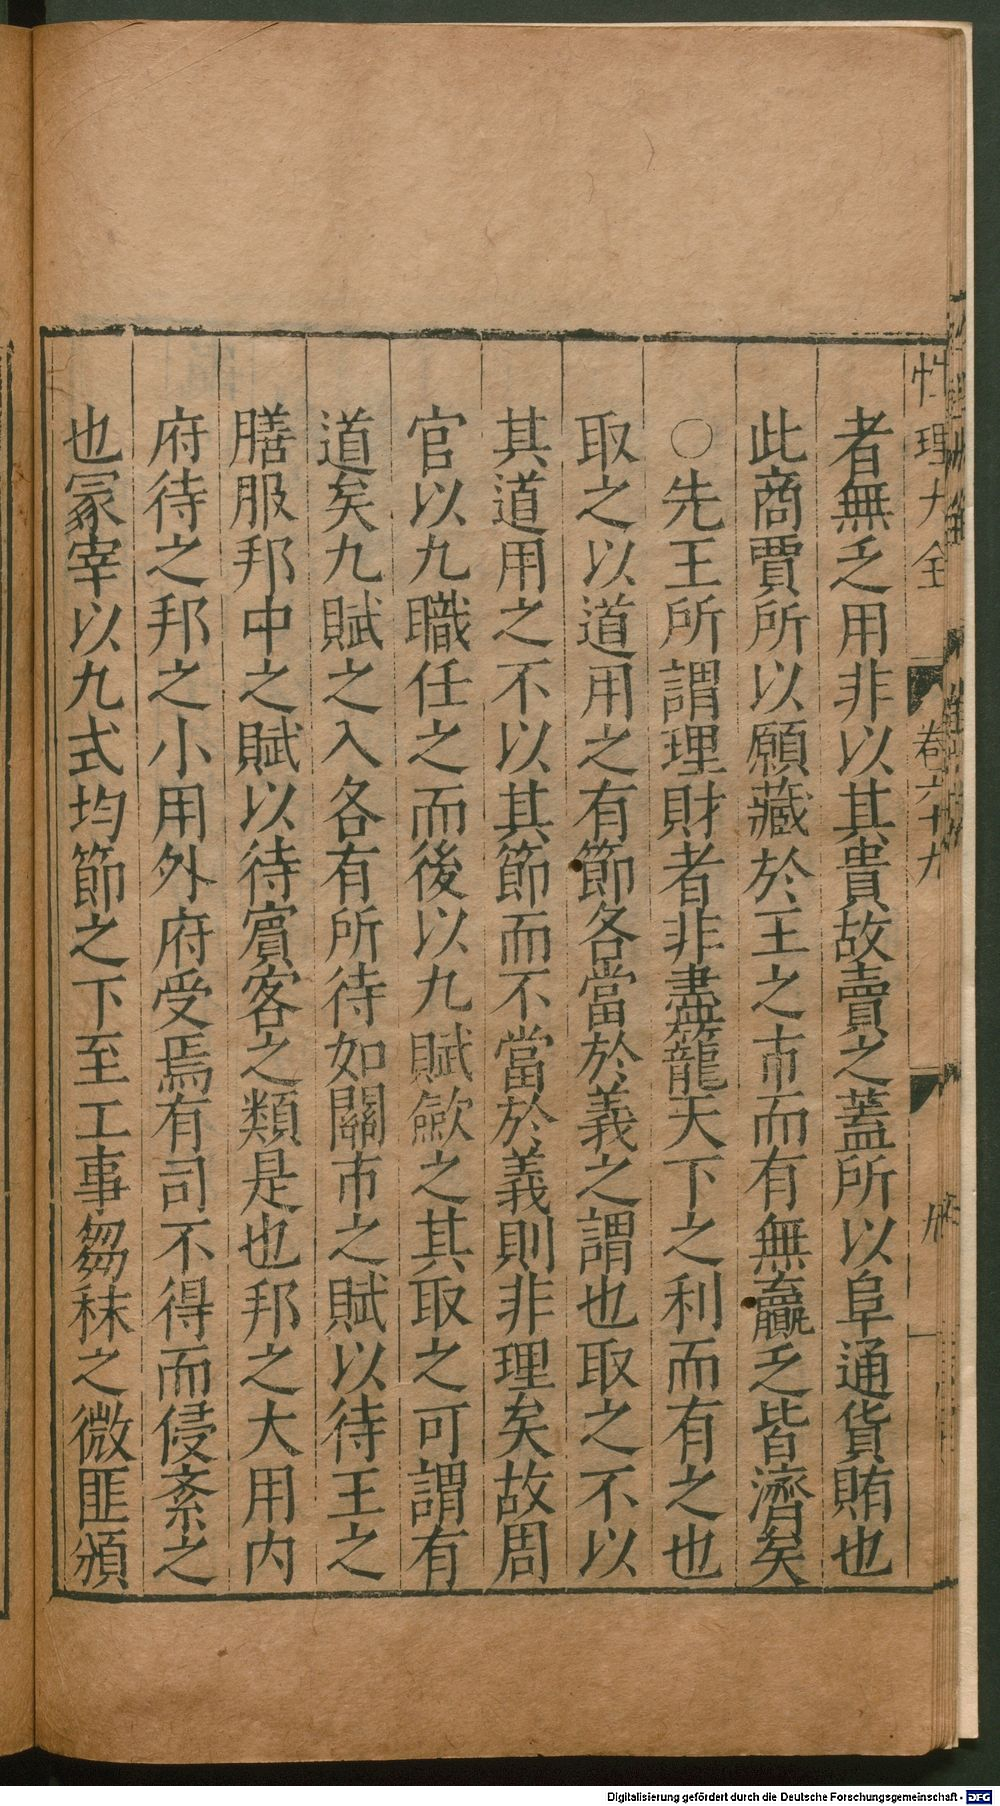 性理大全 卷六十九
者無乏用非以其貴故賣之蓋所以阜通貨賄也
此商賈所以願藏於王之市而有無蠃乏皆濟矣
○先王所謂理財者非盡籠天下之利而有之也
取之以道用之有節各當於義之謂也取之不以
其道用之不以其節而不當於義則非理矣故周
官以九職任之而後以九賦歛之其取之可謂有
道矣九賦之入各有所待如關市之賦以待王之
膳服邦中之賦以待賓客之類是也邦之大用內
府待之邦之小用外府受焉有司不得而侵紊之
也冡宰以九式均節之下至工事芻秣之微匪頒
Digitalisierung gefördert durch die Deutsche Forschungsgemeinschaft - DFG